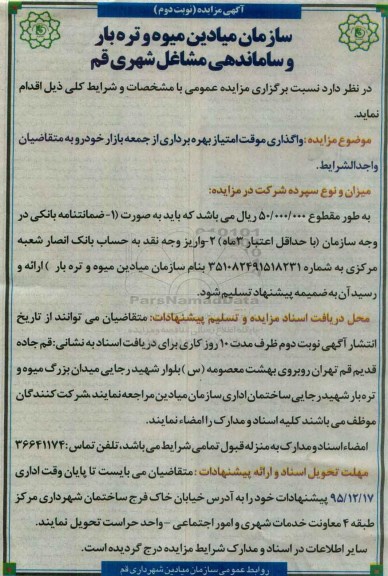 آگهی مزایده (نوبت دوم)
سازمان میادین میوه و تره بار
و ساماندهی مشاغل شهری قم
در نظر دارد نسبت برگزاری مزایده عمومی با مشخصات و شرایط کلی ذیل اقدام
نماید.
موضوع مزایده: واگذاری موقت امتیاز بهره برداری از جمعه بازار خودرو به متقاضیان
واجدالشرایط.
میزان و نوع سپرده شرکت در مزایده:
به طور مقطوع ۵۰/۰۰۰/۰۰۰ ریال می باشد که باید به صورت (۱- ضمانتنامه بانکی در
وجه سازمان (با حداقل اعتبار ۳ماه) ۲-واریز وجه نقد به حساب بانک انصار شعبه
مرکزی به شماره ۳۵۱۰۸۲۴۹۱۵۱۸۲۳۱ بنام سازمان میادین میوه و تره بار ) ارائه و
رسید آن به ضمیمه پیشنهاد تسلیم شود.
ParsNamadData
محل دریافت اسناد مزایده و تسلیم پیشنهادات: متقاضیان می توانند از تاریخ
انتشار آگهی نوبت دوم ظرف مدت ۱۰ روز کاری برای دریافت اسناد به نشانی: قم جاده
قدیم قم تهران روبروی بهشت معصومه (س) بلوار شهید رجایی میدان بزرگ میوه و
تره بار شهید رجایی ساختمان اداری سازمان میادین مراجعه نمایند. شرکت کنندگان
موظف می باشند کلیه اسناد و مدارک را امضاء نمایند.
امضاء اسناد و مدارک به منزله قبول تمامی شرایط می باشد، تلفن تماس: ۳۶۶۴۱۱۷۴
مهلت تحویل اسناد و ارائه پیشنهادات : متقاضیان می بایست تا پایان وقت اداری
۹۵/۱۲/۱۷ پیشنهادات خود را به آدرس خیابان خاک فرج ساختمان شهرداری مرکز
طبقه ۴ معاونت خدمات شهری و امور اجتماعی - واحد حراست تحویل نمایند.
سایر اطلاعات در اسناد و مدارک شرایط مزایده درج گردیده است.
روابط عمومی سازمان میادین شهرداری قم